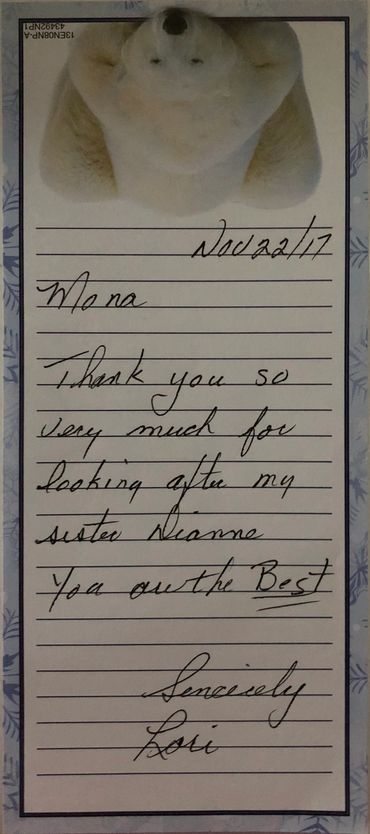 13EN08NP-A
43492NP1
Nov 22/17
Mona
Thank you so
very much for
looking after my
sister Dianne
You are the Best
Sincerely
Lori